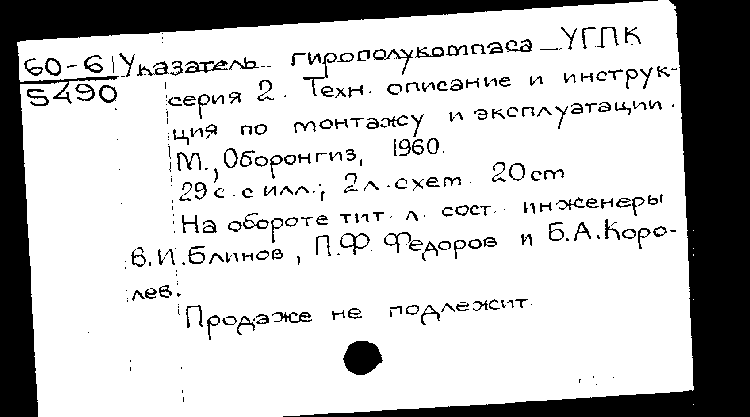 60-6 Указатель гирополукомпаса УГПК
5490
серия 2. Техн. описание и инструк-
ция по монтажу и эксплуатации.
М., Оборонгиз, 1960.
29 с. с илл.; 2 л. схем. 20 cm
На обороте тит. л. сост. инженеры
В.И. Блинов, П.Ф. Федоров и Б.А. Коро-
лев.
Продаже не подлежит.